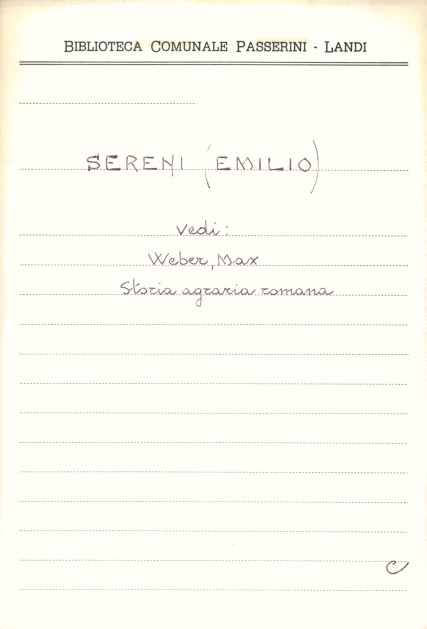 BIBLIOTECA COMUNALE PASSERINI - LANDI
SERENI (EMILIO)
Vedi:
Weber, Max
Storia agraria romana
C